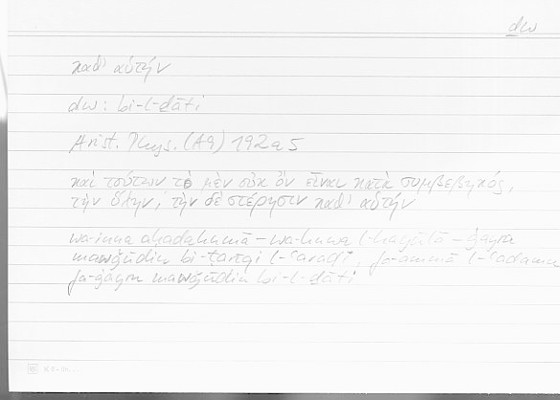 dw
καθ' αὑτήν
dw: bi-l-ḏāti
Arist. Phys. (A9) 192a5
καὶ τούτων τὸ μὲν οὐκ ὂν εἶναι κατὰ συμβεβηκός,
τὴν ὕλην, τὴν δὲ στέρησιν καθ' αὑτήν
wa-inna aḥadahumā – wa-huwa l-hayūlā – ġayru
mawǧūdin bi-ṭarīqi l-ʿaraḍi, fa-ammā l-ʿadamu
fa-ġayru mawǧūdin bi-l-ḏāti